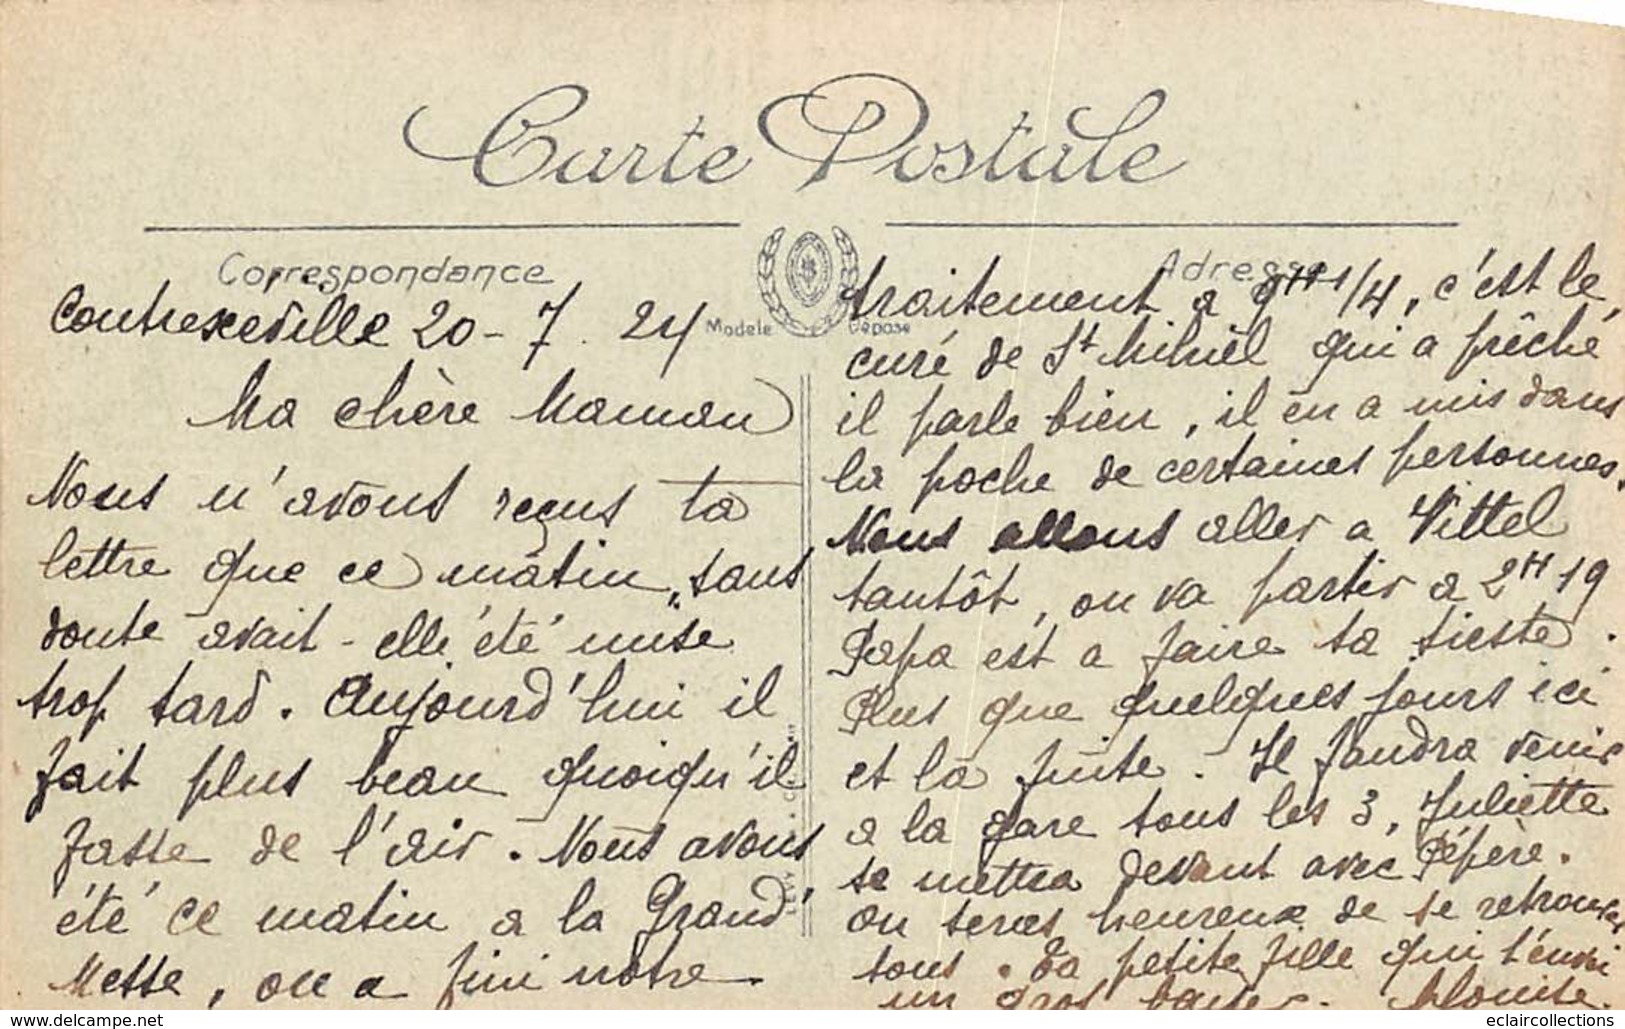 Carte Postale
Correspondance
Adresse
Modèle Déposé
Contrexeville 20-7. 24
Ma chère Maman
Nous n'avons reçus ta
lettre que ce matin, sans
doute avait-elle été mise
trop tard. Aujourd'hui il
fait plus beau quoiqu'il
fasse de l'air. Nous avons
été ce matin a la Grand'
Messe, on a fini notre
traitement a 9H 1/4, c'est le
curé de St Mihiel qui a prêché
il parle bien, il en a mis dans
la poche de certaines personnes.
Nous allons aller a Vittel
tantôt, on va partir a 2H 19
Papa est a faire sa sieste.
Plus que quelques jours ici
et la fuite. Il faudra venir
a la gare tous les 3, Juliette
se mettra devant avec Pépère.
on seras heureux de se retrouver
tous. Ta petite fille qui t'envoi
un gros baiser.
www.delcampe.net
eclaircollections